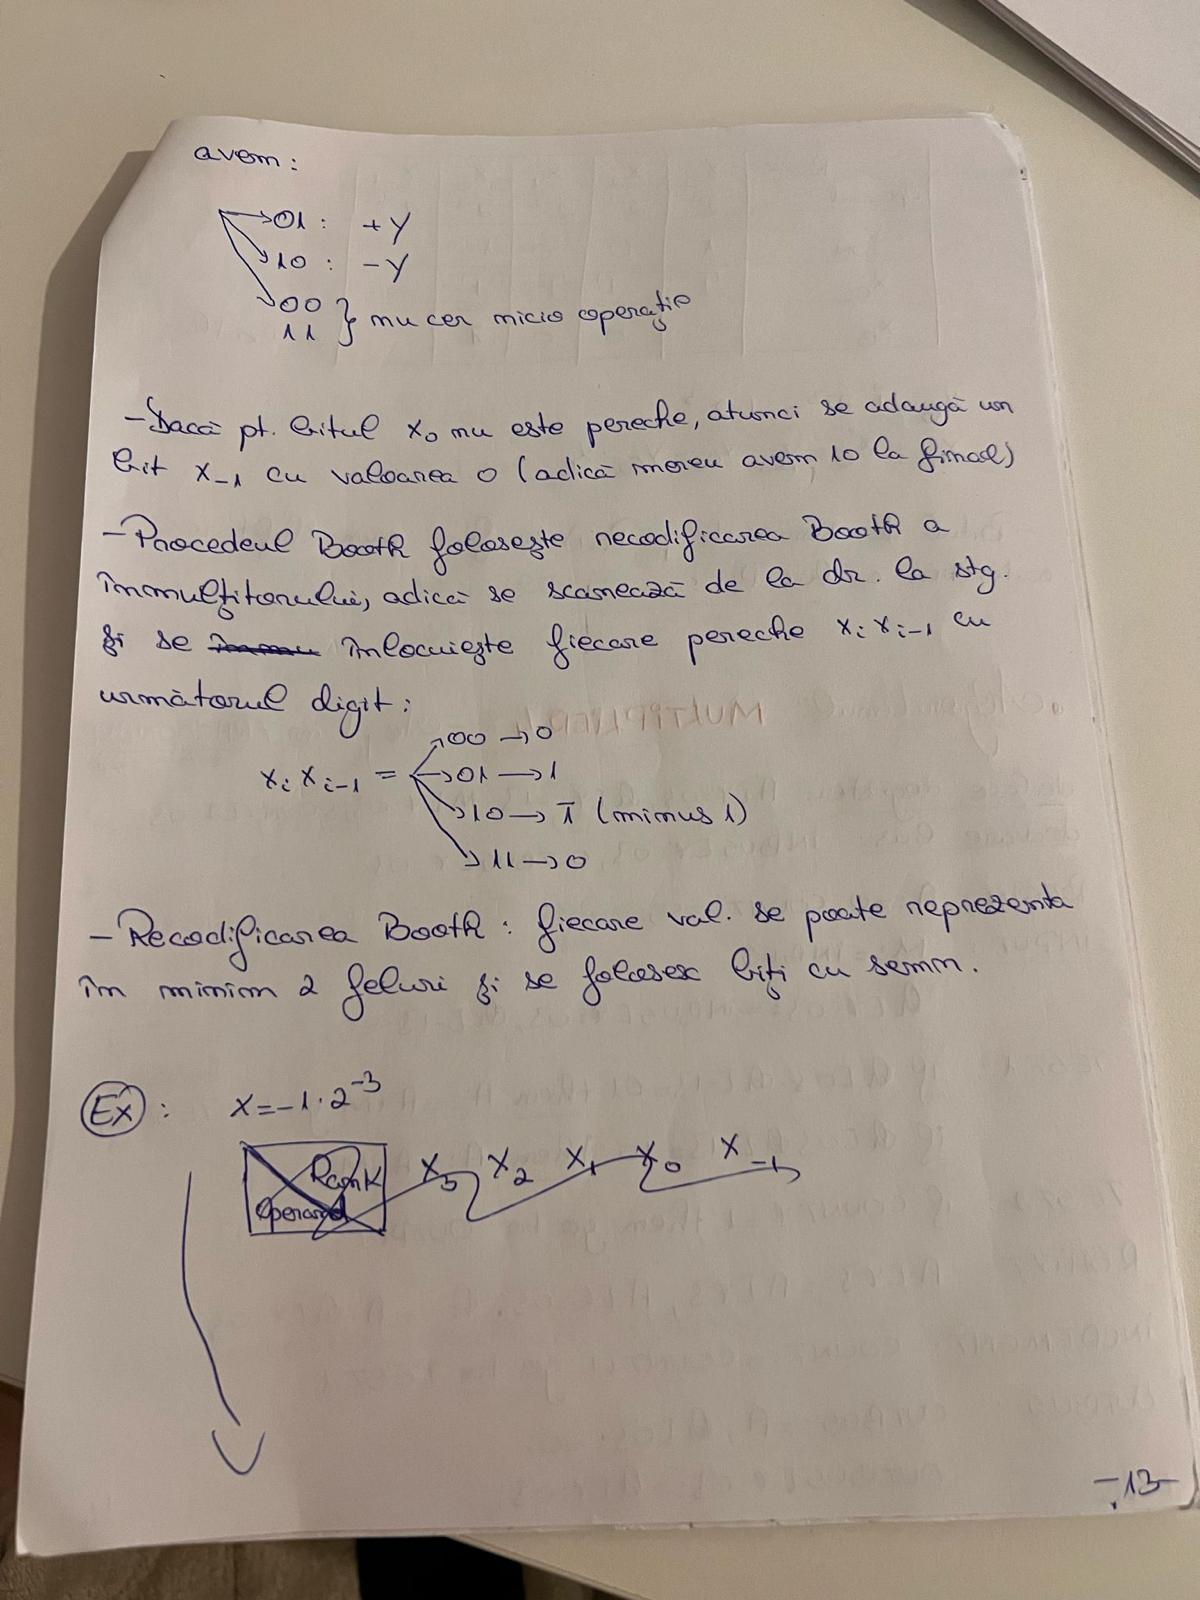 avem:
01: +Y
10: -Y
00
11 } nu cer nicio operație
-Dacă pt. bitul x₀ nu este pereche, atunci se adaugă un
bit x₋₁ cu valoarea 0 (adică mereu avem 10 la final)
-Procedeul Booth folosește recodificarea Booth a
înmulțitorului, adică se scanează de la dr. la stg.
și se înlocuiește fiecare pereche xᵢ xᵢ₋₁ cu
următorul digit:
00 → 0
xᵢ xᵢ₋₁ = 01 → 1
10 → 1̅ (minus 1)
11 → 0
-Recodificarea Booth: fiecare val. se poate reprezenta
în minim 2 feluri și se folosesc biți cu semn.
Ex: x=-1·2⁻³
Rank x₃ x₂ x₁ x₀ x₋₁
Operand
-13-